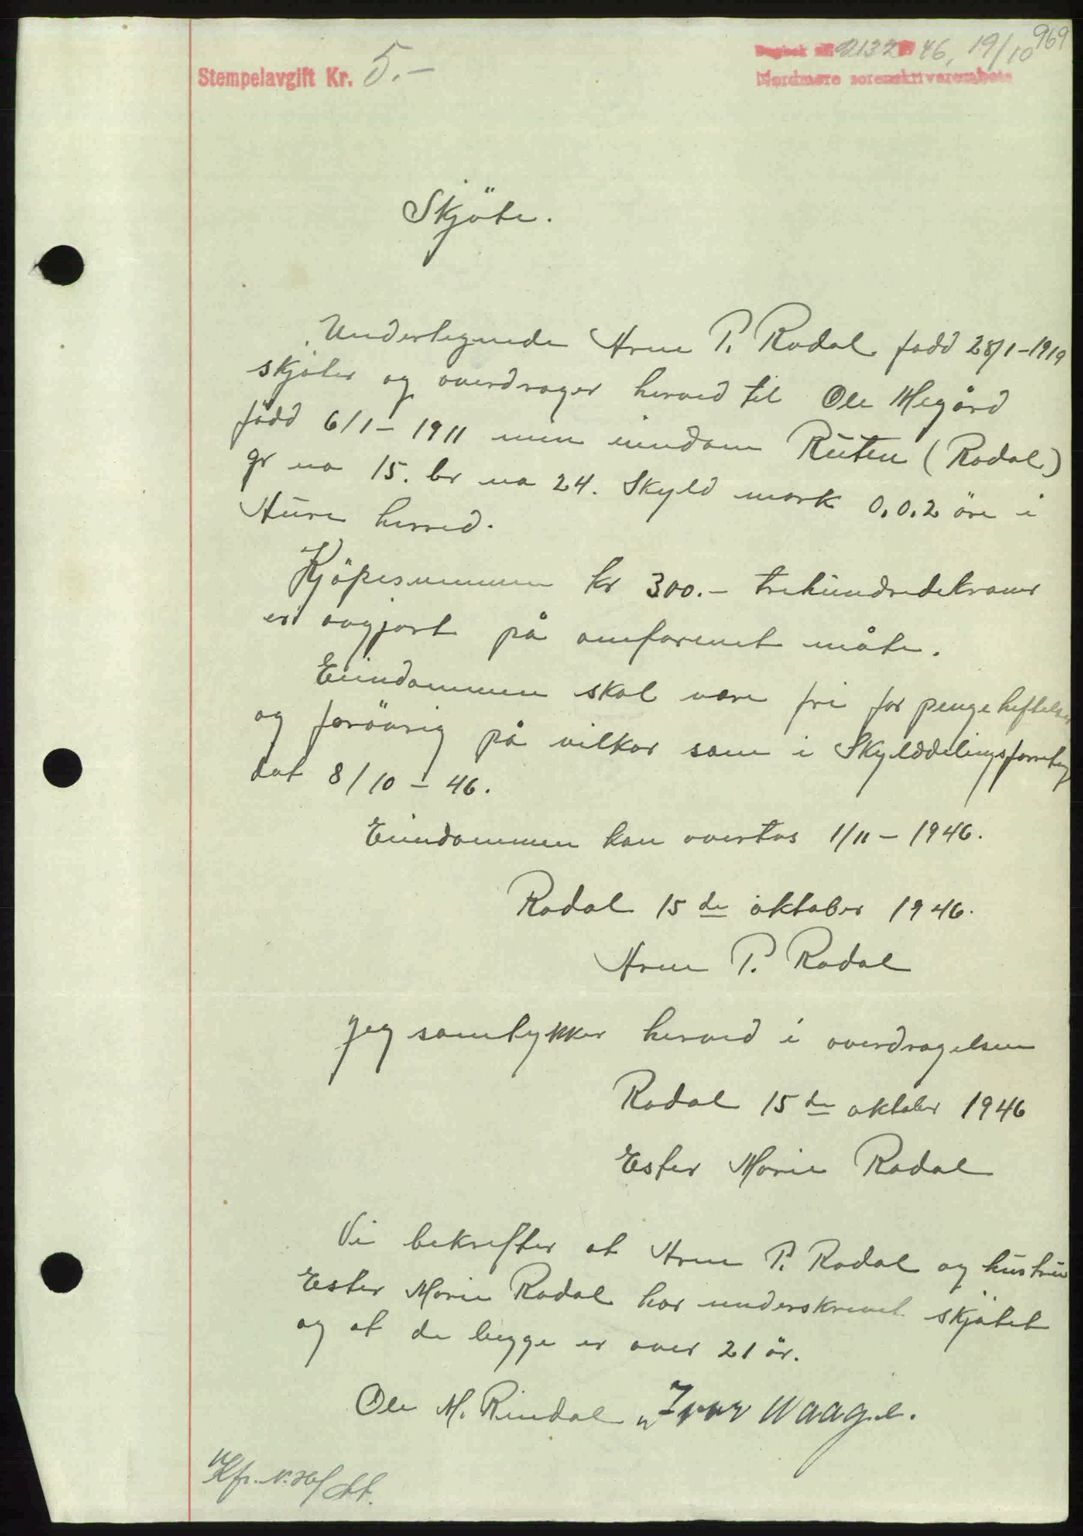 969
Dagbok nr. 2132 46, 19/10
Nordmøre sorenskriverembete
Stempelavgift Kr. 5.-
Skjöte.
Undertegnede Arne P. Rodal född 28/1-1919
skjöter og overdrager herved til Ole Megård
född 6/1-1911 min eiendom Rüten (Rodal)
gr no 15. br no 24. Skyld mark 0.0.2 öre i
Aure herred.
Kjöpesummen kr 300.- trehundredekroner
er avgjort på omforenet måte.
Eiendommen skal være fri for pengeheftelser
og forövrig på vilkor som i Skylddelingsforretng
dat 8/10-46.
Eiendommen kan overtas 1/11-1946.
Rodal 15de oktober 1946.
Arne P. Rodal
Jeg samtykker herved i overdragelsen
Rodal 15de oktober 1946
Ester Marie Rodal
Vi bekrefter at Arne P. Rodal og hustru
Ester Marie Rodal har underskrevet skjötet
og at de begge er over 21 år.
Ole M. Rindal Ivar Waage.